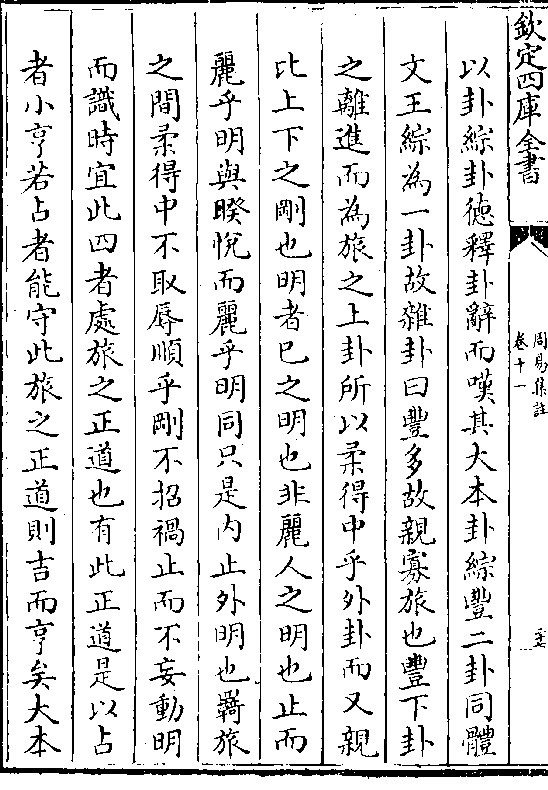 欽定四庫全書
周易集註
卷十一
以卦綜卦德釋卦辭而嘆其大本卦綜豐二卦同體
文王綜為一卦故雜卦曰豐多故親寡旅也豐下卦
之離進而為旅之上卦所以柔得中乎外卦而又親
比上下之剛也明者已之明也非麗人之明也止而
麗乎明與睽悅而麗乎明同只是内止外明也羇旅
之間柔得中不取辱順乎剛不招禍止而不妄動明
而識時宜此四者處旅之正道也有此正道是以占
者小亨若占者能守此旅之正道則吉而亨矣大本